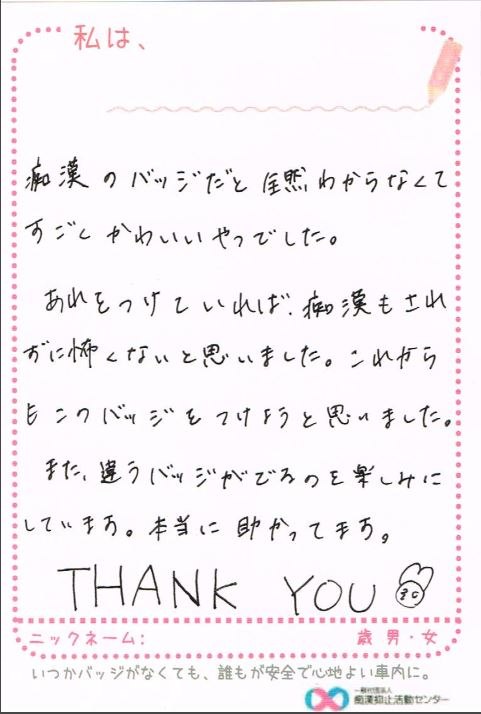 私は、
痴漢のバッジだと全然わからなくて
すごくかわいいやつでした。
あれをつけていれば、痴漢もされ
ずに怖くないと思いました。これから
もこのバッジをつけようと思いました。
また、違うバッジがでるのを楽しみに
しています。本当に助かってます。
THANK YOU
ニックネーム: 歳 男・女
いつかバッジがなくても、誰もが安全で心地よい車内に。
一般社団法人
痴漢抑止活動センター